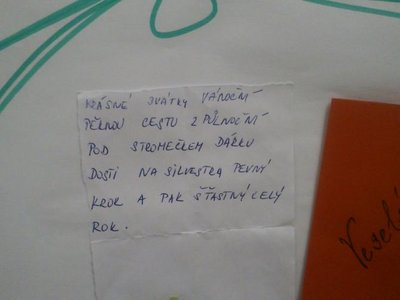 KRÁSNÉ SVÁTKY VÁNOČNÍ
PĚKNOU CESTU Z PŮLNOČNÍ
POD STROMEČKEM DÁRKŮ
DOSTI NA SILVESTRA PEVNÝ
KROK A PAK ŠŤASTNÝ CELÝ
ROK.
Veselé